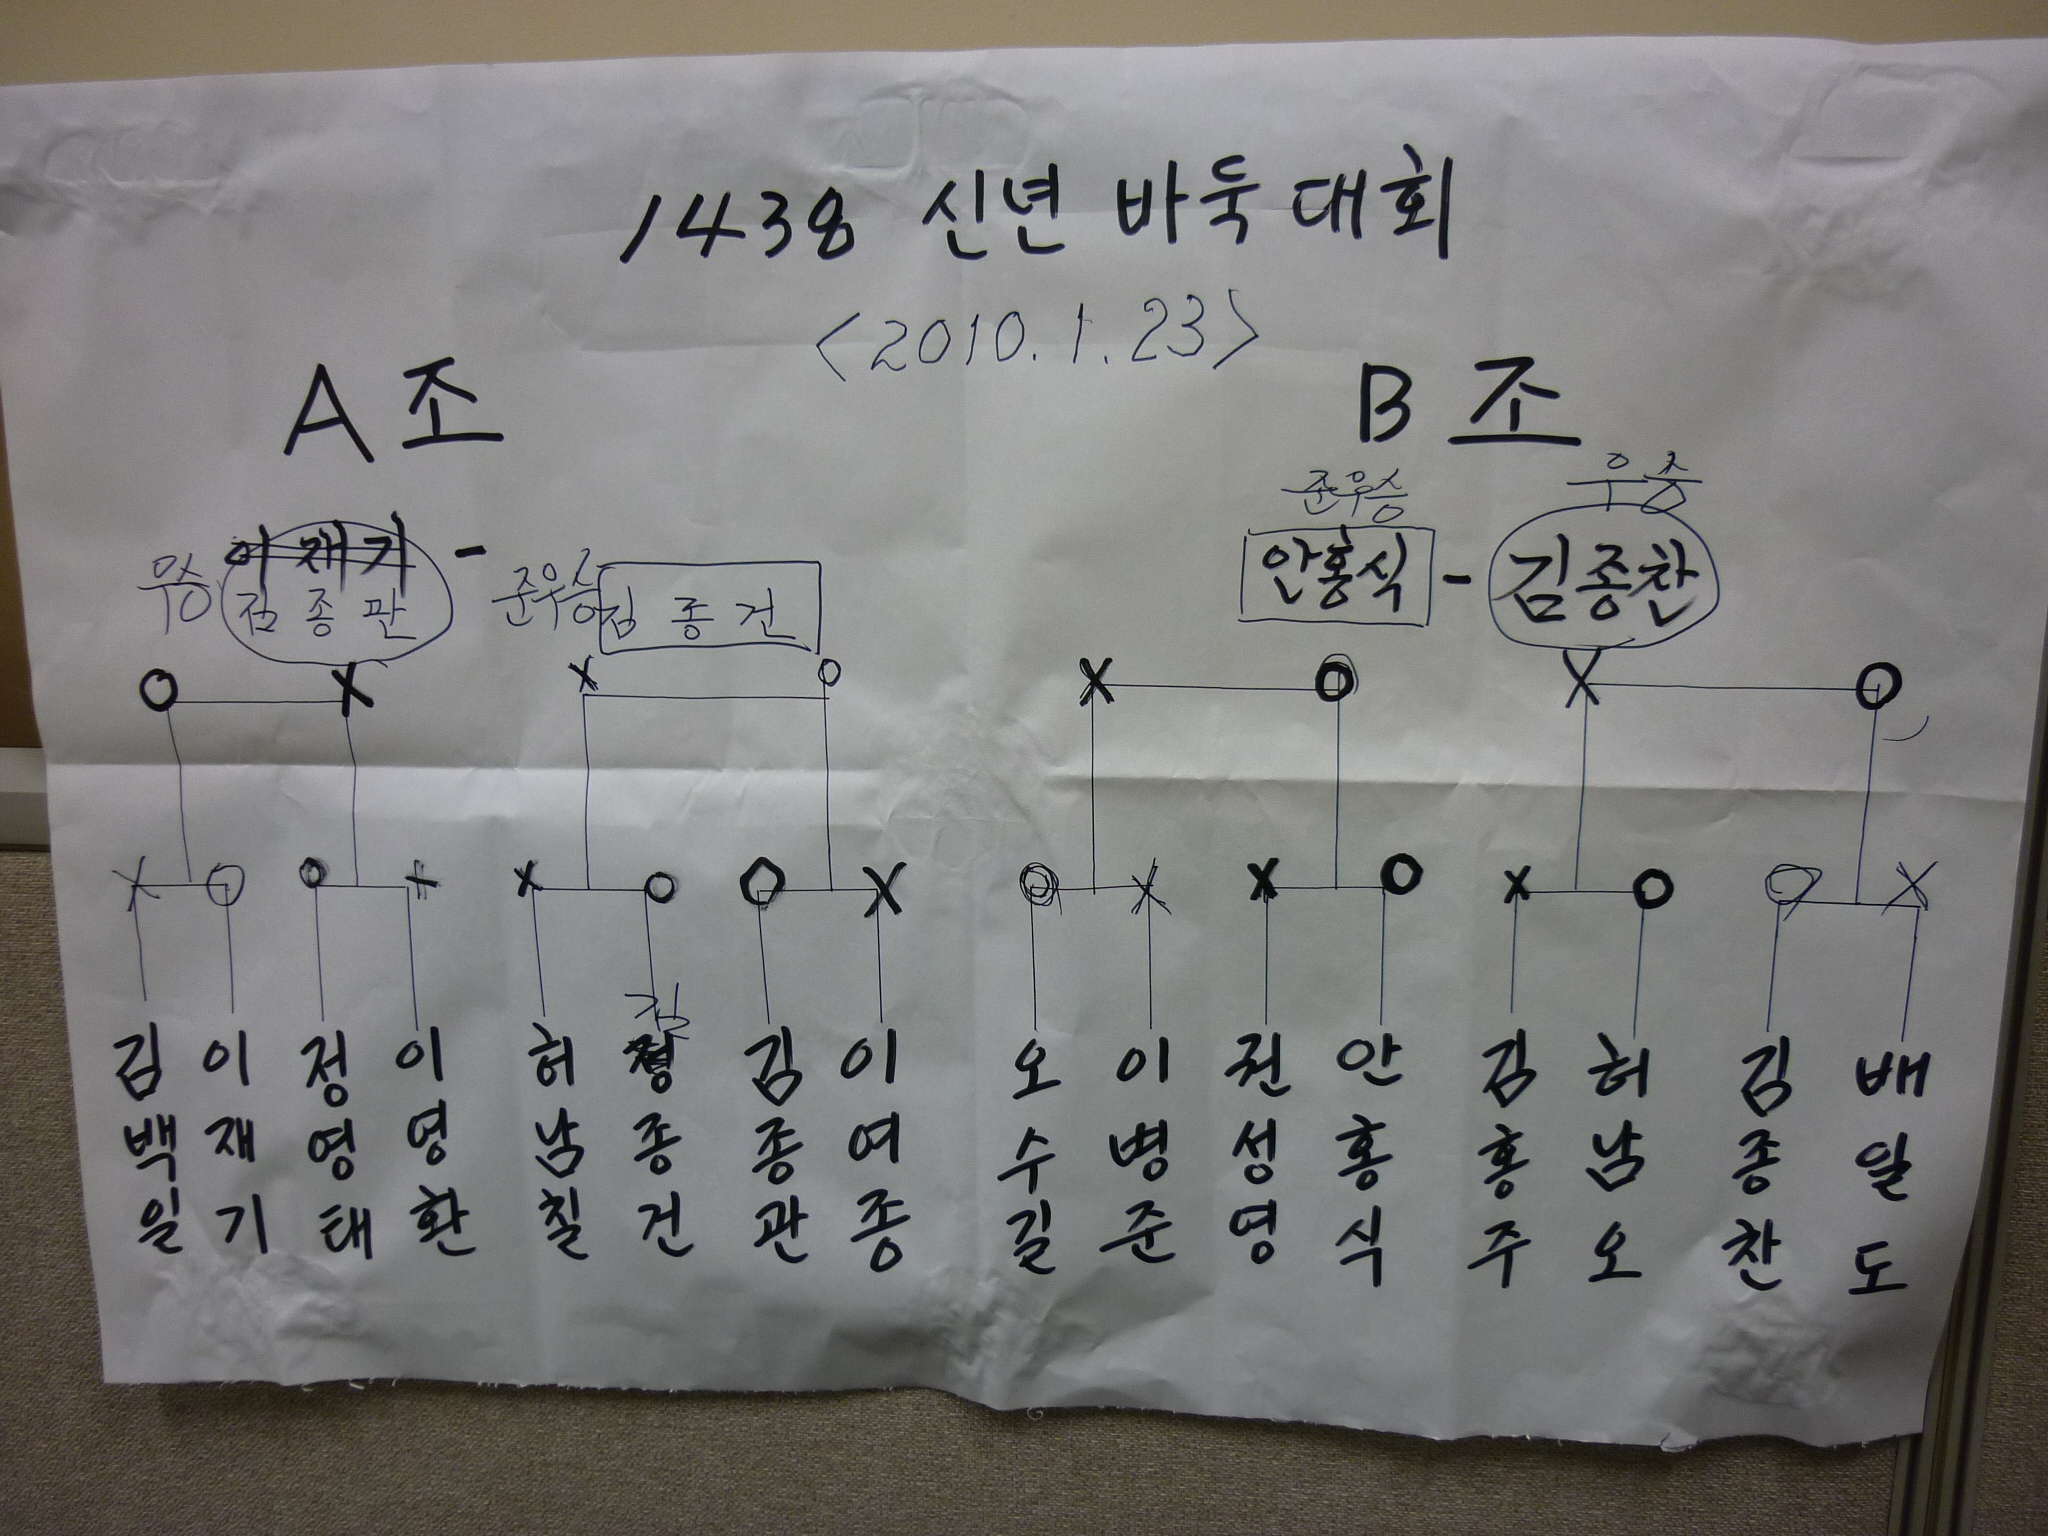 1438 신년 바둑대회
<2010.1.23>
A조
B조
준우승
우승
우승
이재기 -
김종관
준우승
김종건
안홍식 - 김종찬
O X X O X O X O
X O O X X O O X O X X O X O O X
김
김백일
이재기
정영태
이영환
허남칠
정종건
김종관
이여종
오수길
이병준
전성영
안홍식
김홍주
허남오
김종찬
배일도